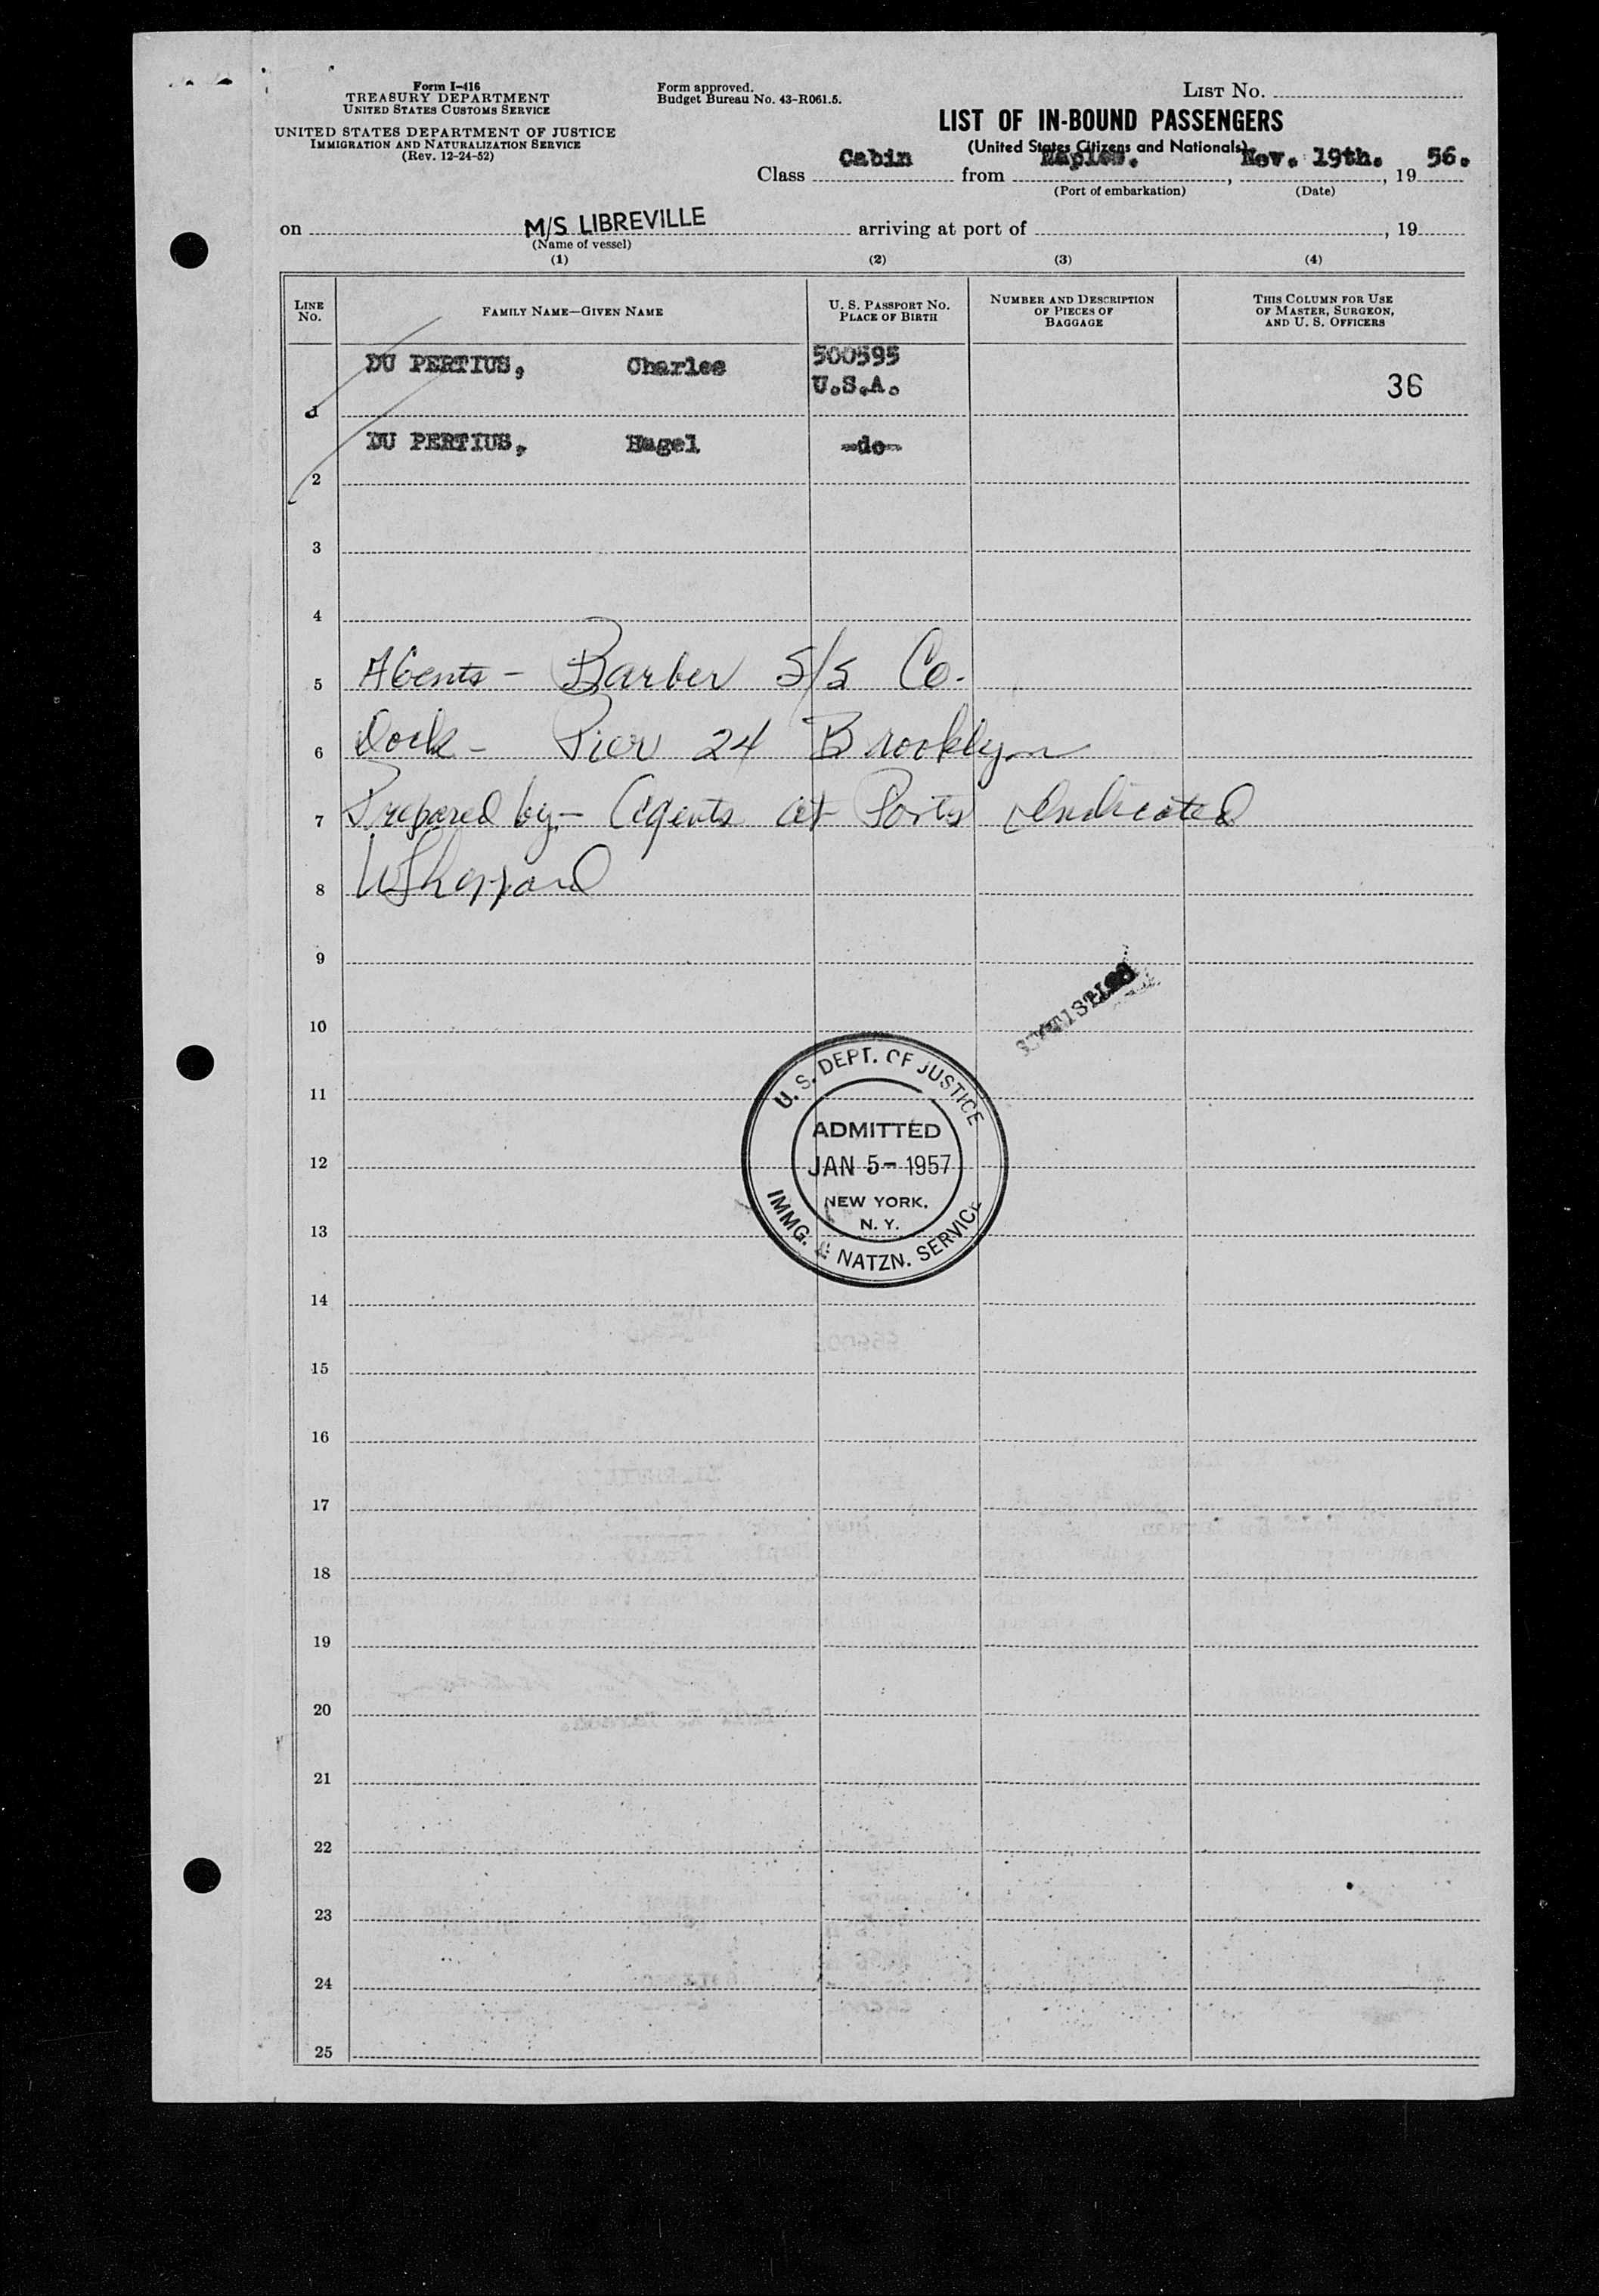 Form I-416
TREASURY DEPARTMENT
UNITED STATES CUSTOMS SERVICE
UNITED STATES DEPARTMENT OF JUSTICE
IMMIGRATION AND NATURALIZATION SERVICE
(Rev. 12-24-52)
Form approved.
Budget Bureau No. 43-R061.5.
LIST NO.
LIST OF IN-BOUND PASSENGERS
(United States Citizens and Nationals)
Class Cabin from Naples. , Nov. 19th. , 19 56.
(Port of embarkation) (Date)
on M/S LIBREVILLE arriving at port of , 19
(Name of vessel)
(1) (2) (3) (4)
LINE NO. FAMILY NAME—GIVEN NAME U. S. PASSPORT NO. PLACE OF BIRTH NUMBER AND DESCRIPTION OF PIECES OF BAGGAGE THIS COLUMN FOR USE OF MASTER, SURGEON, AND U. S. OFFICERS
DU PERTIUS, Charles 500595
U.S.A. 36
1
DU PERTIUS, Hagel -do-
2
3
4
5 Agents - Barber S/S Co.
6 Dock - Pier 24 Brooklyn
7 Prepared by - Agents at Ports Indicated
8 WSheppard
9
10
11
12
13
14
15
16
17
18
19
20
21
22
23
24
25
U. S. DEPT. OF JUSTICE
ADMITTED
JAN 5 - 1957
NEW YORK,
N. Y.
IMMG. & NATZN. SERVICE